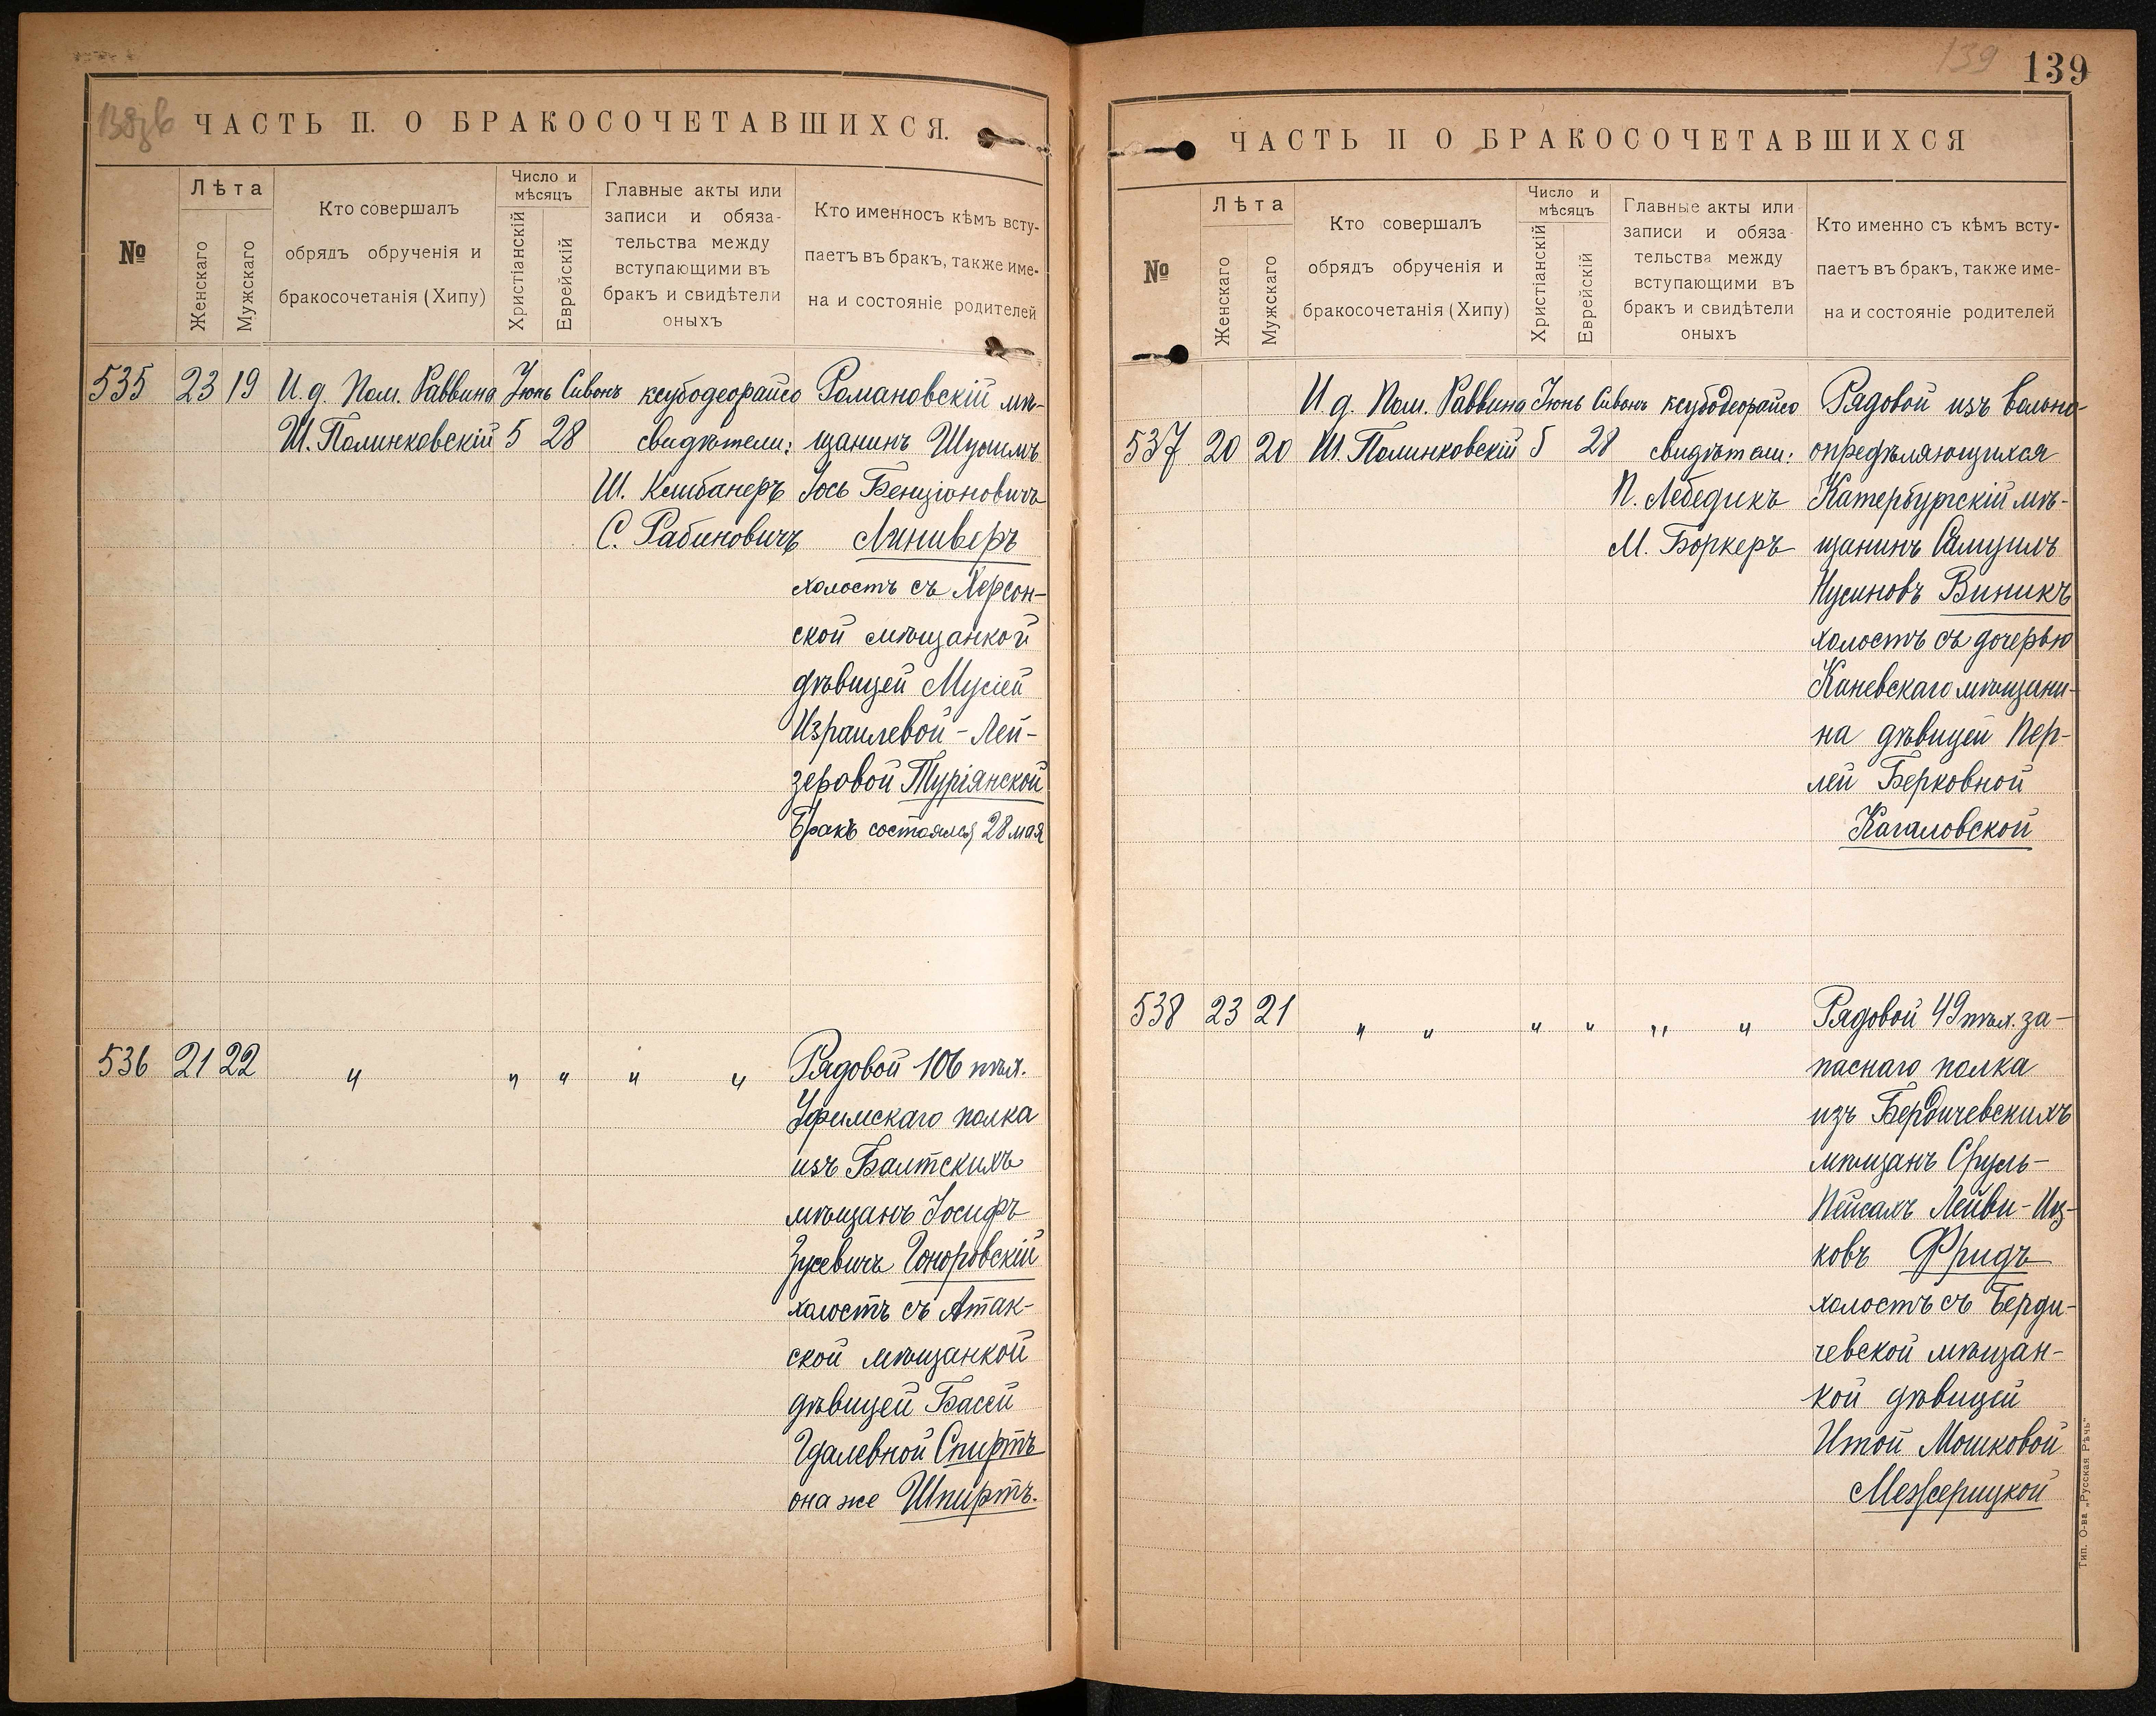 138зв
ЧАСТЬ П. О БРАКОСОЧЕТАВШИХСЯ.
№
Лѣта
Женскаго
Мужскаго
Кто совершалъ
обрядъ обрученія и
бракосочетанія (Хипу)
Число и
мѣсяцъ
Христіанскій
Еврейскій
Главные акты или
записи и обяза-
тельства между
вступающими въ
бракъ и свидѣтели
оныхъ
Кто именносъ кѣмъ всту-
паетъ въ бракъ, также име-
на и состояніе родителей
535 23 19 И. д. Пом. Раввина Іюнь Сивонъ ксубодеорайсо Романовскій мѣ-
Ш. Полинковскій 5 28 свидѣтели: щанинъ Шулимъ
Ш. Клибанеръ Іось Бенціоновичъ
С. Рабиновичъ Линиверъ
холостъ съ Херсон-
ской мѣщанкой
дѣвицей Мусіей
Израилевой-Лей-
зеровой Туріянской
Бракъ состоялся 28 мая
536 21 22 " " " " " Рядовой 106 пѣх.
Уфимскаго полка
изъ Балтскихъ
мѣщанъ Іосифъ
Зусевичъ Гоноровскій
холостъ съ Атак-
ской мѣщанкой
дѣвицей Басей
Гдалевной Спиртъ
она же Шпиртъ.
139
139
ЧАСТЬ П О БРАКОСОЧЕТАВШИХСЯ
№
Лѣта
Женскаго
Мужскаго
Кто совершалъ
обрядъ обрученія и
бракосочетанія (Хипу)
Число и
мѣсяцъ
Христіанскій
Еврейскій
Главные акты или
записи и обяза-
тельства между
вступающими въ
бракъ и свидѣтели
оныхъ
Кто именно съ кѣмъ всту-
паетъ въ бракъ, также име-
на и состояніе родителей
И. д. Пом. Раввина Іюнь Сивонъ ксубодеорайсо Рядовой изъ вольно-
537 20 20 Ш. Полинковскій 5 28 свидѣтели: опредѣляющихся
П. Лебедикъ Катербургскій мѣ-
М. Боркеръ щанинъ Самуилъ
Нусиновъ Виникъ
холостъ съ дочерью
Каневскаго мѣщани-
на дѣвицей Пер-
лей Берковной
Кагаловской
538 23 21 " " " " " " Рядовой 49 пѣх. за-
паснаго полка
изъ Бердичевскихъ
мѣщанъ Сруль-
Пейсахъ Лейви-Иц-
ковъ Фридъ
холостъ съ Берди-
чевской мѣщан-
кой дѣвицей
Итой Мошковой
Межерицкой
Тип. О-ва „Русская Рѣчь"